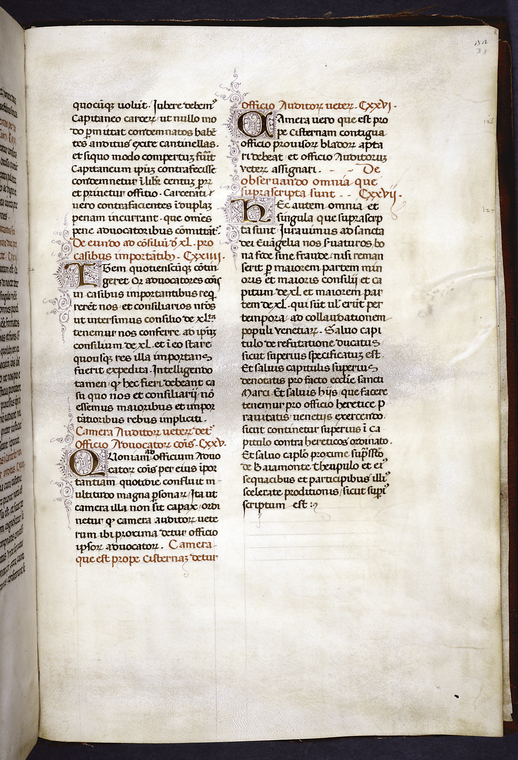 quocūq; voluit. Jubere debem⁹
Capitaneo carceꝝ ut nullo mo
do ꝑmittat condemnatos habē
tes anditus exire cantinellas.
et siquo modo compertuʒ fūit
Capitaneum ipm̄ contrafecisse
condemnetur ī libr̄ centuʒ ꝑꝝ
et priuetur officio. Carcerati
vero contrafacientes ī duplaʒ
penam incurrant. que om̄es
pene aduocatoribus cōmittāt̄.
De eundo ad cōsiliū d̄ xl. pro
casibus importātib;. Cxxiiii.
ITem quotienscūq; cōtin
geret q̄ aduocatores cōis
in casibus importantibus req̄
rerēt nos et consiliarios nr̄os
ut intersimus consilio de xl.ᵗᵃ
tenemur nos conferre ad ip̄m
consilium de xl. et ī eo stare
quousq; res illa importans
fuerit expedita. Intelligendo
tamen q̄ hec fieri debeant ca
su quo nos et consiliarij nō
essemus maioribus et impor
tatioribus rebus impliciti.
Camera Auditoꝝ veteꝝ det̄
Officio Aduocatoꝝ cōis. Cxxv.
QUoniam ad officium Aduo
catoꝝ cōis per eius ipor
tantiam quotidie confluit m
ultitudo magna ꝑsonaꝝ Ita ut
camera illa non sit capax ordi
netur q̄ camera auditoꝝ vete
rum ibi proxima detur officio
ipsoꝝ aduocatoꝝ. Camera
que est prope cisternaʒ detur
officio Auditoꝝ veteꝝ. Cxxvi.
CAmera vero que est pro
pe cisternam contigua
officio prouisoꝝ bladoꝝ apta
ri debeat et officio Auditoꝝ
veteꝝ assignari. De
obseruando omnia que
suprascripta sunt. Cxxvij.
HEc autem omnia et
singula que suprascrip
ta sunt Iurauimus ad sancta
dei Euāgelia nos ꝑuaturos bo
na fide sine fraude. nisi reman
serit ꝑ maiorem partem min
oris et maioris consilij et ca
pitum de xl. et maiorem par
tem de xl. qui sūt ul' erūt per
tempora ad collaudationem
populi venetiaꝝ. Saluo capi
tulo de refutatione ducatus
sicut superius specificatuʒ est.
Et saluis capitulis superius
denotatis pro facto eccl'ie sancti
Marci. Et saluis hijs que facere
tenemur pro officio heretice ꝑ
rauitatis venetijs exercendo
sicut continetur superius ī ca
pitulo contra hereticos ordinato.
Et saluo caplo proxime supˢcͥpto
de Baiamonte theupulo et eiꝰ
sequacibus et participibus illiꝰ
scelerate proditionis sicut supˢ
scriptum est :